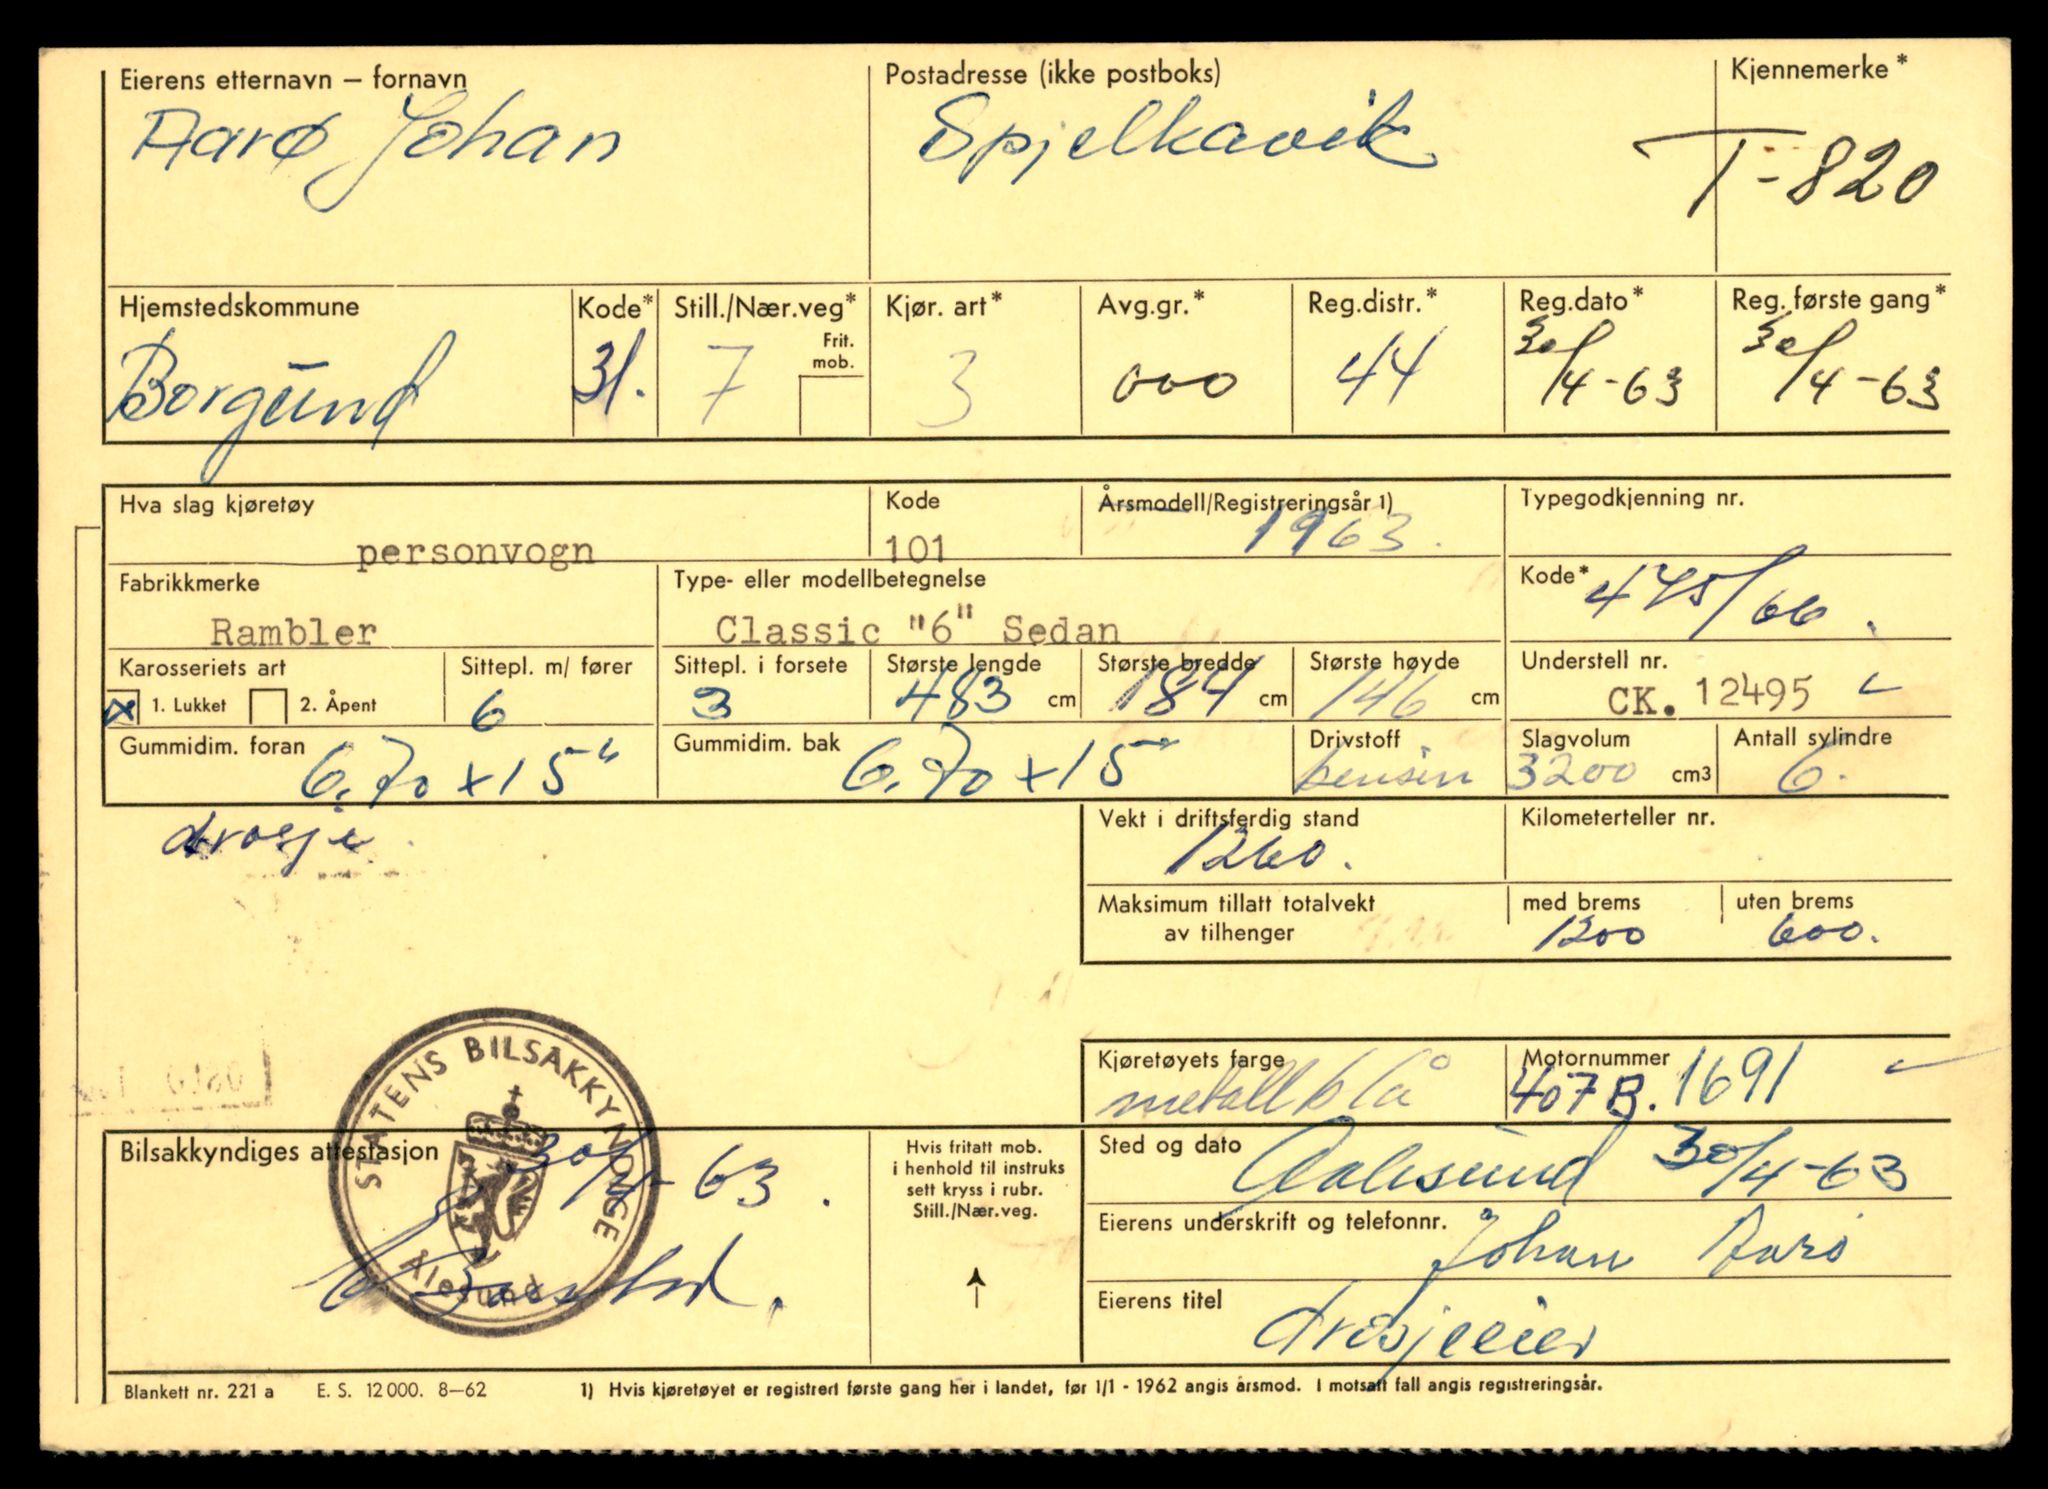 Eierens etternavn – fornavn Postadresse (ikke postboks) Kjennemerke*
Aarø Johan Spjelkavik T-820
Hjemstedskommune Kode* Still./Nær.veg* Kjør. art* Avg.gr.* Reg.distr.* Reg.dato* Reg. første gang*
Frit. mob.
Borgund 31. 7 3 000 44 30/4-63 30/4-63
Hva slag kjøretøy Kode Årsmodell/Registreringsår 1) Typegodkjenning nr.
personvogn 101 1963.
Fabrikkmerke Type- eller modellbetegnelse Kode* 475/66.
Rambler Classic "6" Sedan
Karosseriets art Sittepl. m/ fører Sittepl. i forsete Største lengde Største bredde Største høyde Understell nr.
x 1. Lukket 2. Åpent 6 3 483 cm 184 cm 146 cm CK. 12495
Gummidim. foran Gummidim. bak Drivstoff Slagvolum Antall sylindre
6.70 x 15" 6.70 x 15" bensin 3200 cm3 6.
drosje.
Vekt i driftsferdig stand Kilometerteller nr.
1260.
Maksimum tillatt totalvekt med brems uten brems
av tilhenger 1200 600.
STATENS BILSAKKYNDIGE
Ålesund
Kjøretøyets farge Motornummer
metallblå 407B. 1691
Bilsakkyndiges attestasjon
30/4-63.
Hvis fritatt mob.
i henhold til instruks
sett kryss i rubr.
Still./Nær.veg.
Sted og dato
Aalesund 30/4-63
Eierens underskrift og telefonnr.
Johan Aarø
Eierens titel
drosjeeier
Blankett nr. 221 a E. S. 12000. 8–62 1) Hvis kjøretøyet er registrert første gang her i landet, før 1/1 - 1962 angis årsmod. I motsatt fall angis registreringsår.